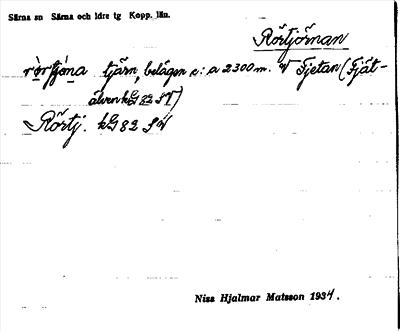 Särna sn Särna och Idre tg Kopp. län.
Rörtjörnan
tjärn, belägen c:a 2300 m. V Fjetan (Fjät-
älven kG 82 SV)
Rörtj. kG 82 SV
Niss Hjalmar Matsson 1934.